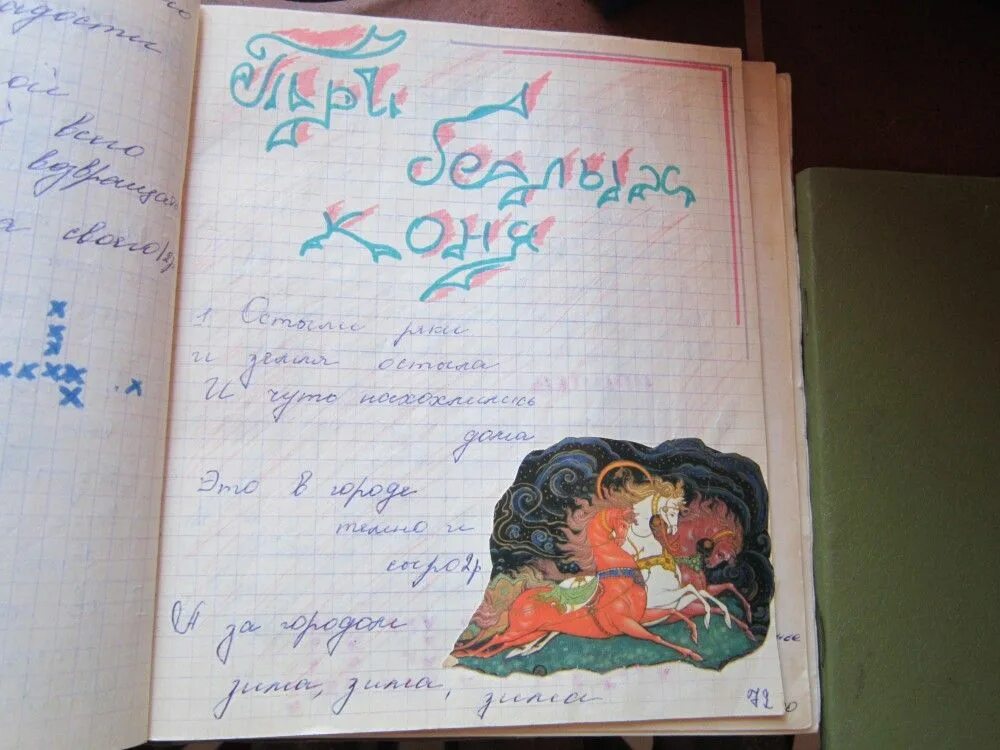 адости
ой
всего
своего
Три
белых
коня
1 Остыли реки
и земля остыла
И чуть нахохлились
дома
Это в городе
темно и
сыро 2р
А за городом
зима, зима, зима
72